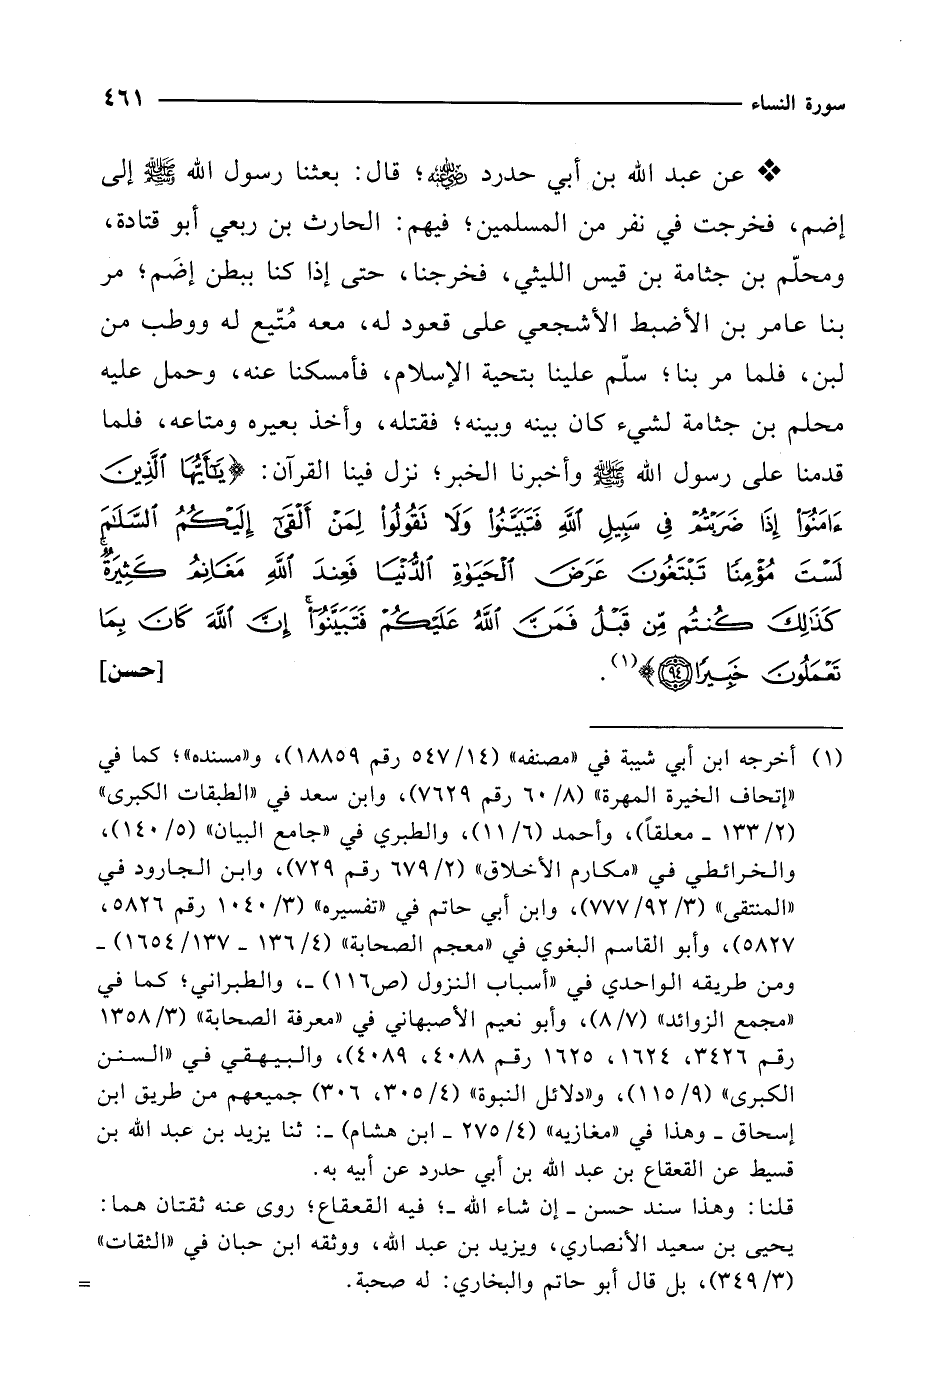 سورة النساء ٤٦١
❖ عن عبد الله بن أبي حدرد رضي الله عنه؛ قال: بعثنا رسول الله ﷺ إلى
إضم، فخرجت في نفر من المسلمين؛ فيهم: الحارث بن ربعي أبو قتادة،
ومحلّم بن جثامة بن قيس الليثي، فخرجنا، حتى إذا كنا ببطن إضَم؛ مر
بنا عامر بن الأضبط الأشجعي على قعود له، معه مُتّيع له ووطب من
لبن، فلما مر بنا؛ سلّم علينا بتحية الإسلام، فأمسكنا عنه، وحمل عليه
محلم بن جثامة لشيء كان بينه وبينه؛ فقتله، وأخذ بعيره ومتاعه، فلما
قدمنا على رسول الله ﷺ وأخبرنا الخبر؛ نزل فينا القرآن: ﴿يَٰٓأَيُّهَا ٱلَّذِينَ
ءَامَنُوٓا۟ إِذَا ضَرَبْتُمْ فِى سَبِيلِ ٱللَّهِ فَتَبَيَّنُوا۟ وَلَا تَقُولُوا۟ لِمَنْ أَلْقَىٰٓ إِلَيْكُمُ ٱلسَّلَٰمَ
لَسْتَ مُؤْمِنًا تَبْتَغُونَ عَرَضَ ٱلْحَيَوٰةِ ٱلدُّنْيَا فَعِندَ ٱللَّهِ مَغَانِمُ كَثِيرَةٌ ۚ
كَذَٰلِكَ كُنتُم مِّن قَبْلُ فَمَنَّ ٱللَّهُ عَلَيْكُمْ فَتَبَيَّنُوٓا۟ ۚ إِنَّ ٱللَّهَ كَانَ بِمَا
تَعْمَلُونَ خَبِيرًا ٩٤﴾(١). [حسن]
(١) أخرجه ابن أبي شيبة في «مصنفه» (١٤/ ٥٤٧ رقم ١٨٨٥٩)، و«مسنده»؛ كما في
«إتحاف الخيرة المهرة» (٨/ ٦٠ رقم ٧٦٢٩)، وابن سعد في «الطبقات الكبرى»
(٢/ ١٣٣ ـ معلقاً)، وأحمد (٦/ ١١)، والطبري في «جامع البيان» (٥/ ١٤٠)،
والخرائطي في «مكارم الأخلاق» (٢/ ٦٧٩ رقم ٧٢٩)، وابن الجارود في
«المنتقى» (٣/ ٩٢/ ٧٧٧)، وابن أبي حاتم في «تفسيره» (٣/ ١٠٤٠ رقم ٥٨٢٦،
٥٨٢٧)، وأبو القاسم البغوي في «معجم الصحابة» (٤/ ١٣٦ ـ ١٣٧/ ١٦٥٤) ـ
ومن طريقه الواحدي في «أسباب النزول (ص١١٦) ـ، والطبراني؛ كما في
«مجمع الزوائد» (٧/ ٨)، وأبو نعيم الأصبهاني في «معرفة الصحابة» (٣/ ١٣٥٨
رقم ٣٤٢٦، ١٦٢٤، ١٦٢٥ رقم ٤٠٨٨، ٤٠٨٩)، والبيهقي في «السنن
الكبرى» (٩/ ١١٥)، و«دلائل النبوة» (٤/ ٣٠٥، ٣٠٦) جميعهم من طريق ابن
إسحاق ـ وهذا في «مغازيه» (٤/ ٢٧٥ ـ ابن هشام) ـ: ثنا يزيد بن عبد الله بن
قسيط عن القعقاع بن عبد الله بن أبي حدرد عن أبيه به.
قلنا: وهذا سند حسن ـ إن شاء الله ـ؛ فيه القعقاع؛ روى عنه ثقتان هما:
يحيى بن سعيد الأنصاري، ويزيد بن عبد الله، ووثقه ابن حبان في «الثقات»
(٣/ ٣٤٩)، بل قال أبو حاتم والبخاري: له صحبة. =